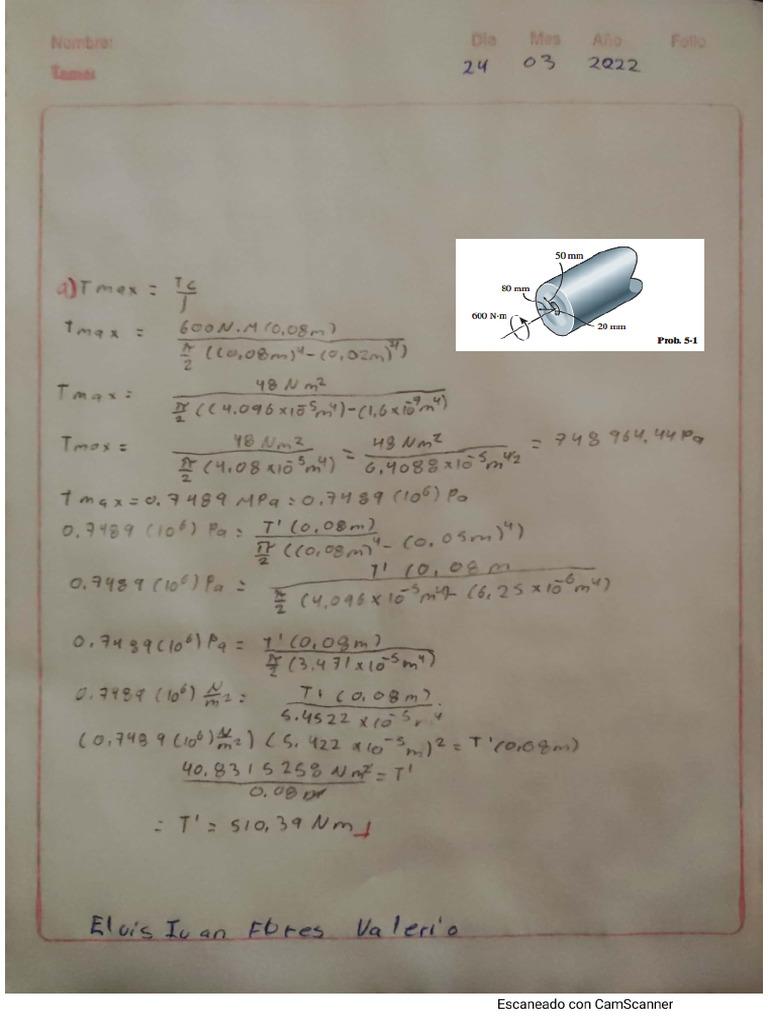 Nombre: Dia Mes Año Folio
Tema: 24 03 2022
50 mm
80 mm
600 N·m
20 mm
Prob. 5-1
a) Tmax = Tc/J
Tmax = 600 N.M (0,08m) / π/2 ((0,08m)^4 - (0,02m)^4)
Tmax = 48 Nm^2 / π/2 ((4.096x10^-5 m^4) - (1,6x10^-9 m^4)
Tmax = 48 Nm^2 / π/2 (4.08x10^-5 m^4) = 48 Nm^2 / 6,4088x10^-5 m^4/2 = 748 964,44 Pa
Tmax = 0.7489 MPa = 0.7489 (10^6) Pa
0.7489 (10^6) Pa = T' (0,08m) / π/2 ((0,08m)^4 - (0,05m)^4)
0.7489 (10^6) Pa = T' (0,08m / π/2 (4,096x10^-5 m^4 - (6,25x10^-6 m^4)
0.7489 (10^6) Pa = T' (0,08m) / π/2 (3.471x10^-5 m^4)
0.7489 (10^6) N/m^2 = T' (0.08m) / 5.4522x10^-5 m^4
(0,7489 (10^6) N/m^2) (5,422x10^-5 m)^2 = T' (0,08m)
40,8315258 Nm^2 / 0,08m = T'
= T' = 510,39 Nm
Elvis Ivan Flores Valerio
Escaneado con CamScanner